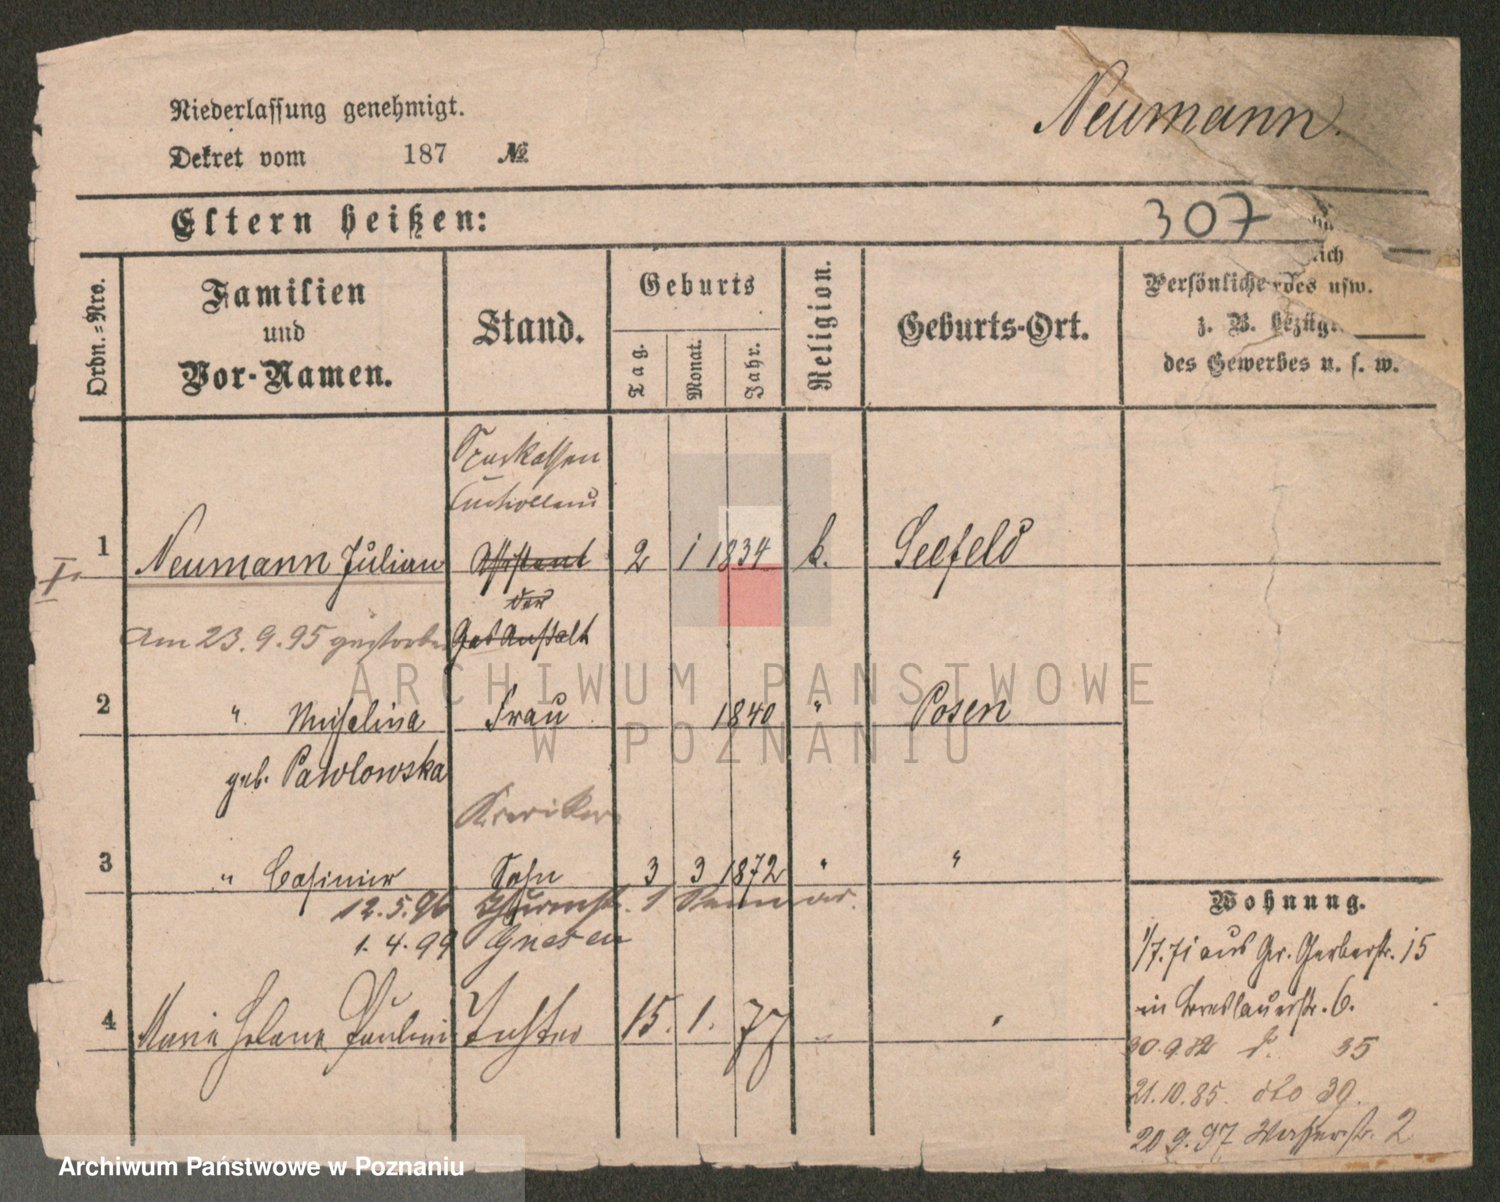 Niederlassung genehmigt.
Dekret vom 187 №
Neumann.
Eltern heißen:
307
Ordn.=Nro.
Familien
und
Vor-Namen.
Stand.
Geburts
Tag.
Monat.
Jahr.
Religion.
Geburts-Ort.
Persönliche
z. B. bezügl.
des Gewerbes u. s. w.
Sparkassen
1 Neumann Julian Assistent 2 1 1834 k. Seefeld
I.
der
Am 23.9.95 gestorben Gas Anstalt
ARCHIWUM PAŃSTWOWE
W POZNANIU
2 " Frau 1840 " Posen
geb. Pawlowska
3 " Casimir Sohn 3 3 1872 " "
12.5.96
1.4.99 Gnesen
4 Marie Helene Tochter 15. 1. 77 "
Wohnung.
1/7.71 aus Gr. Gerberstr. 15
in Breslauerstr. 6.
30.9.82 35
21.10.85. dto 39.
20.9.97 Wasserstr. 2
Archiwum Państwowe w Poznaniu